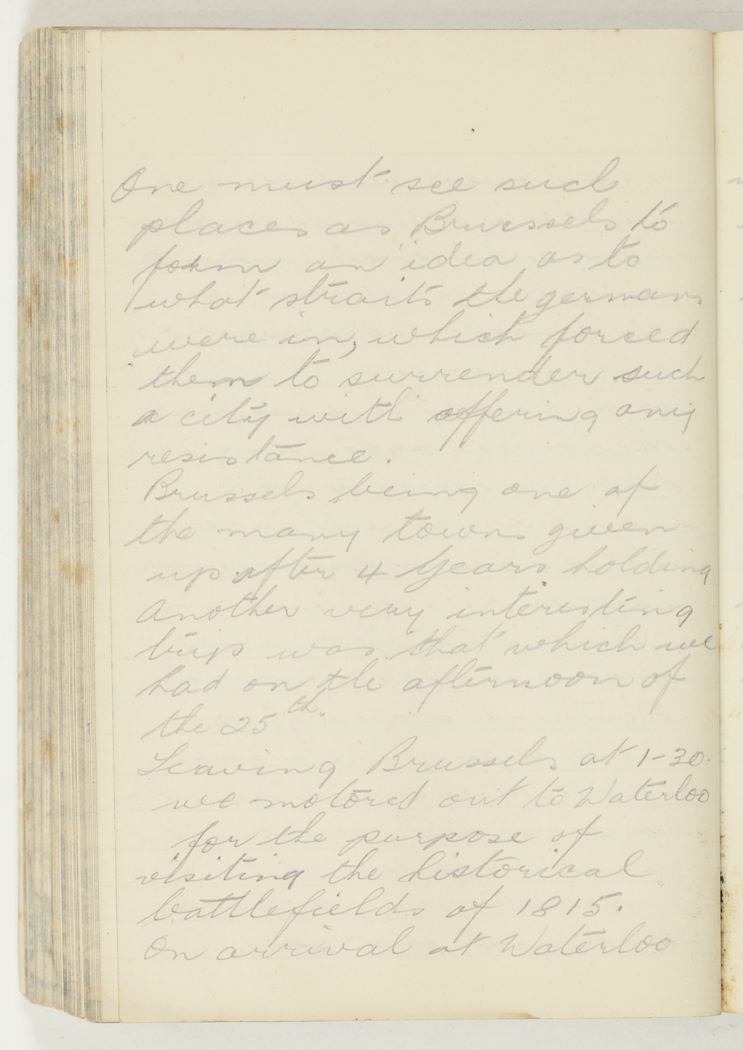 One must see such
places as Brussels to
form an idea as to
what straits the germans
were in, which forced
them to surrender such
a city with offering any
resistance.
Brussels being one of
the many towns given
up after 4 Years holding
Another very interesting
trip was that which we
had on the afternoon of
the 25th.
Leaving Brussels at 1-30.
we motored out to Waterloo
for the purpose of
visiting the historical
battlefields of 1815.
On arrival at Waterloo